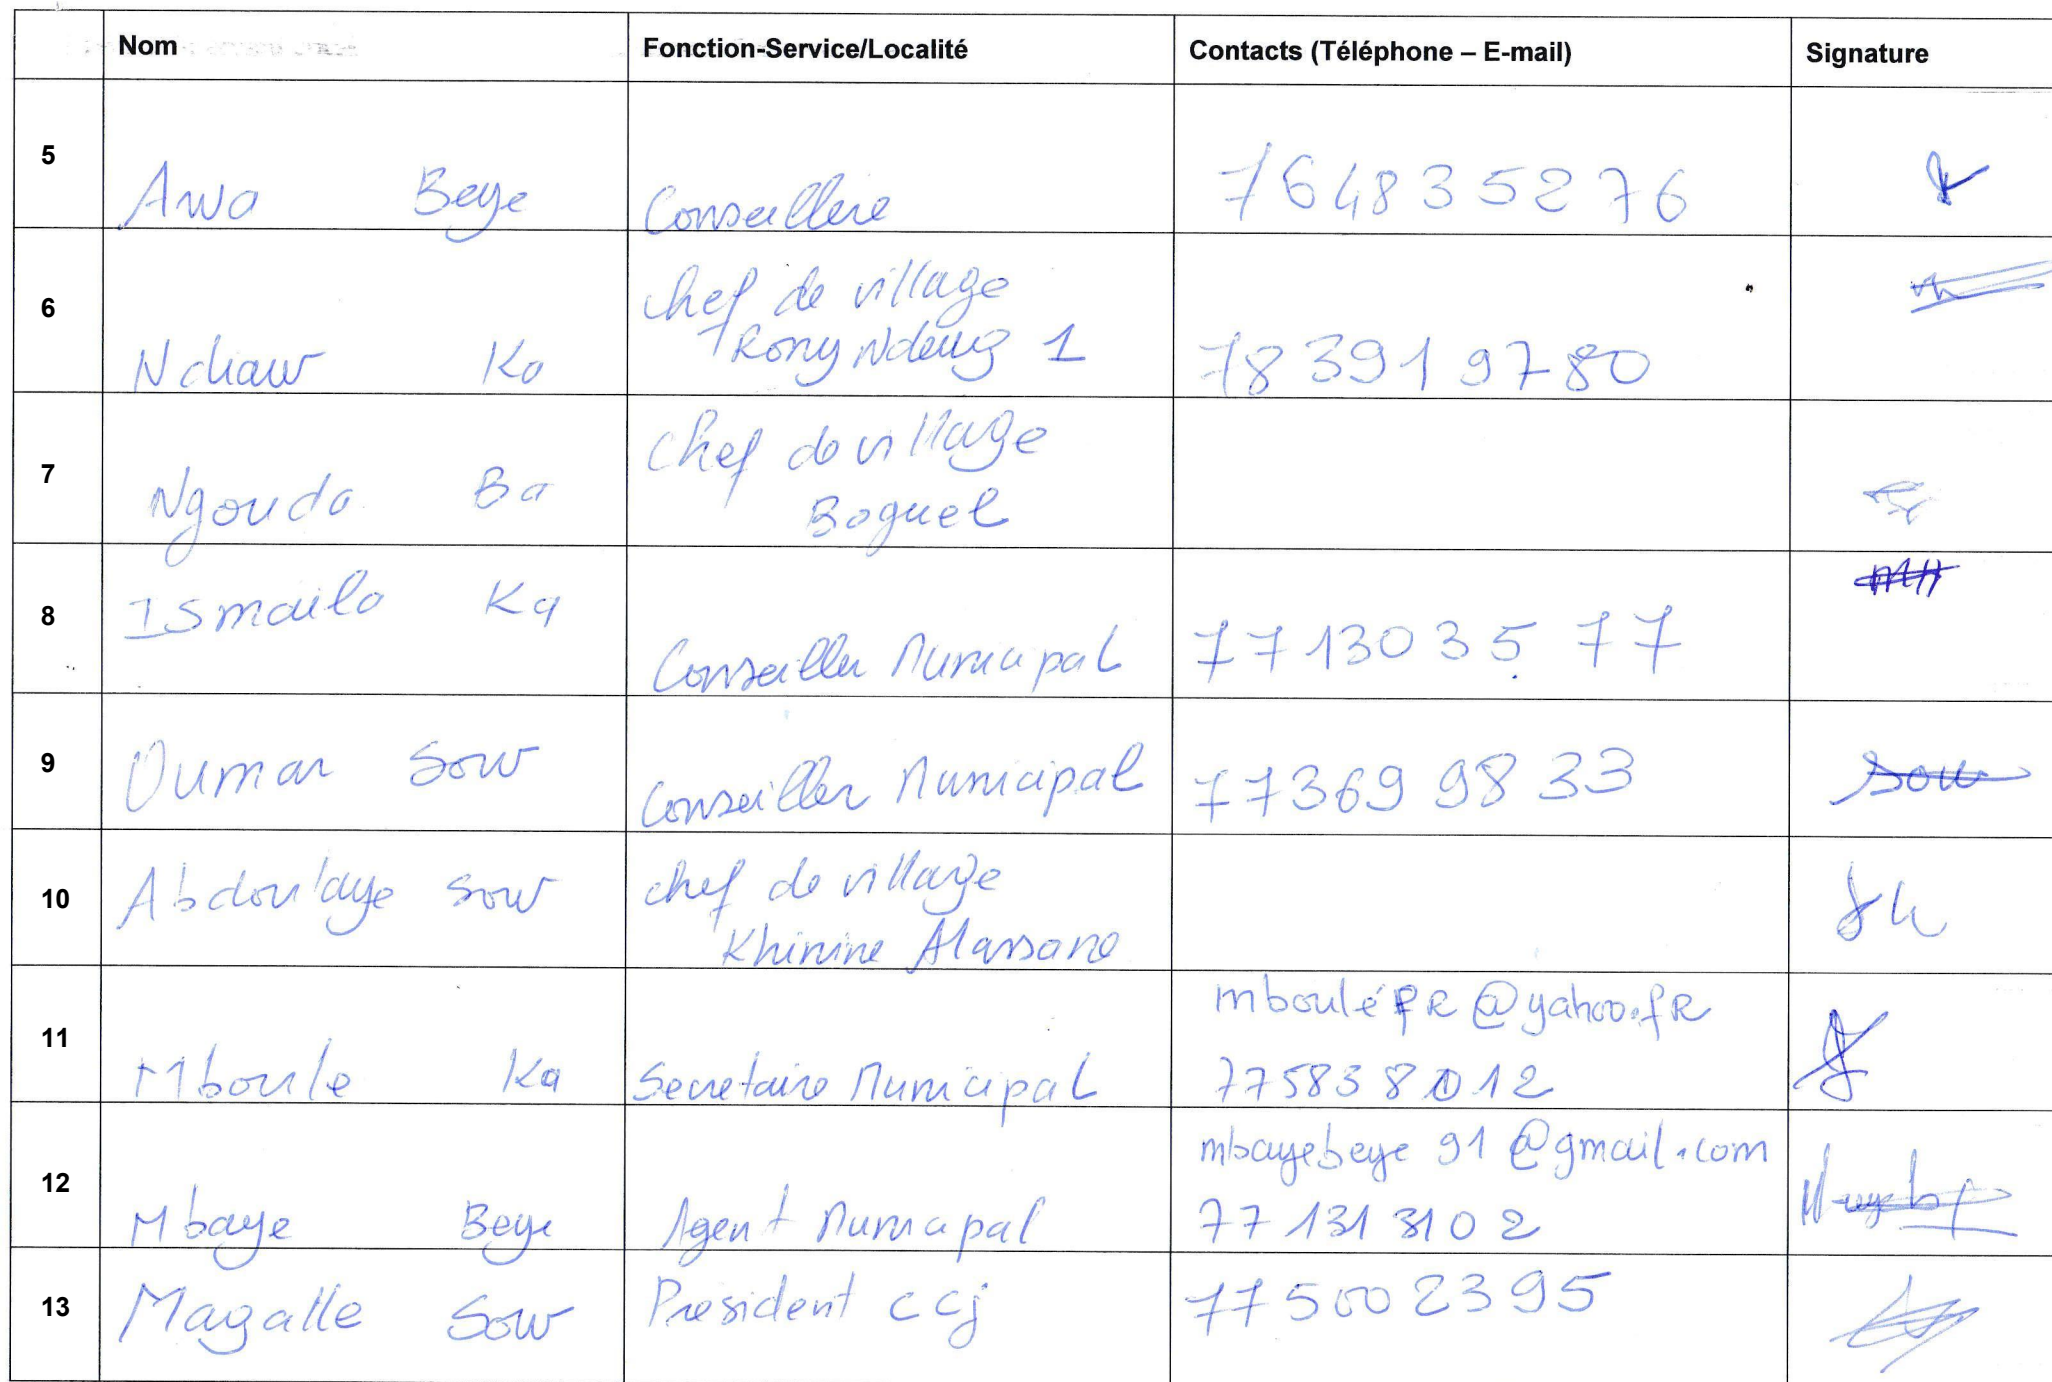 Nom Fonction-Service/Localité Contacts (Téléphone – E-mail) Signature
5 Awa Beye Conseillère 764835276
6 Ndiaw Ka chef de village 783919780
1
7 Ngouda Ba chef de village
Boguel
8 Ismaila Ka Conseiller Municipal 771303577
9 Oumar Sow Conseiller Municipal 773699833 Sow
10 Abdoulaye Sow chef de village
Khinine Alassane
11 Mboule Ka Secretaire Municipal mbouléfR@yahoo.fR
775838012
12 Mbaye Beye Agent Municipal mbayebeye91@gmail.com
771313102
13 Magatte Sow President ccj 775002395